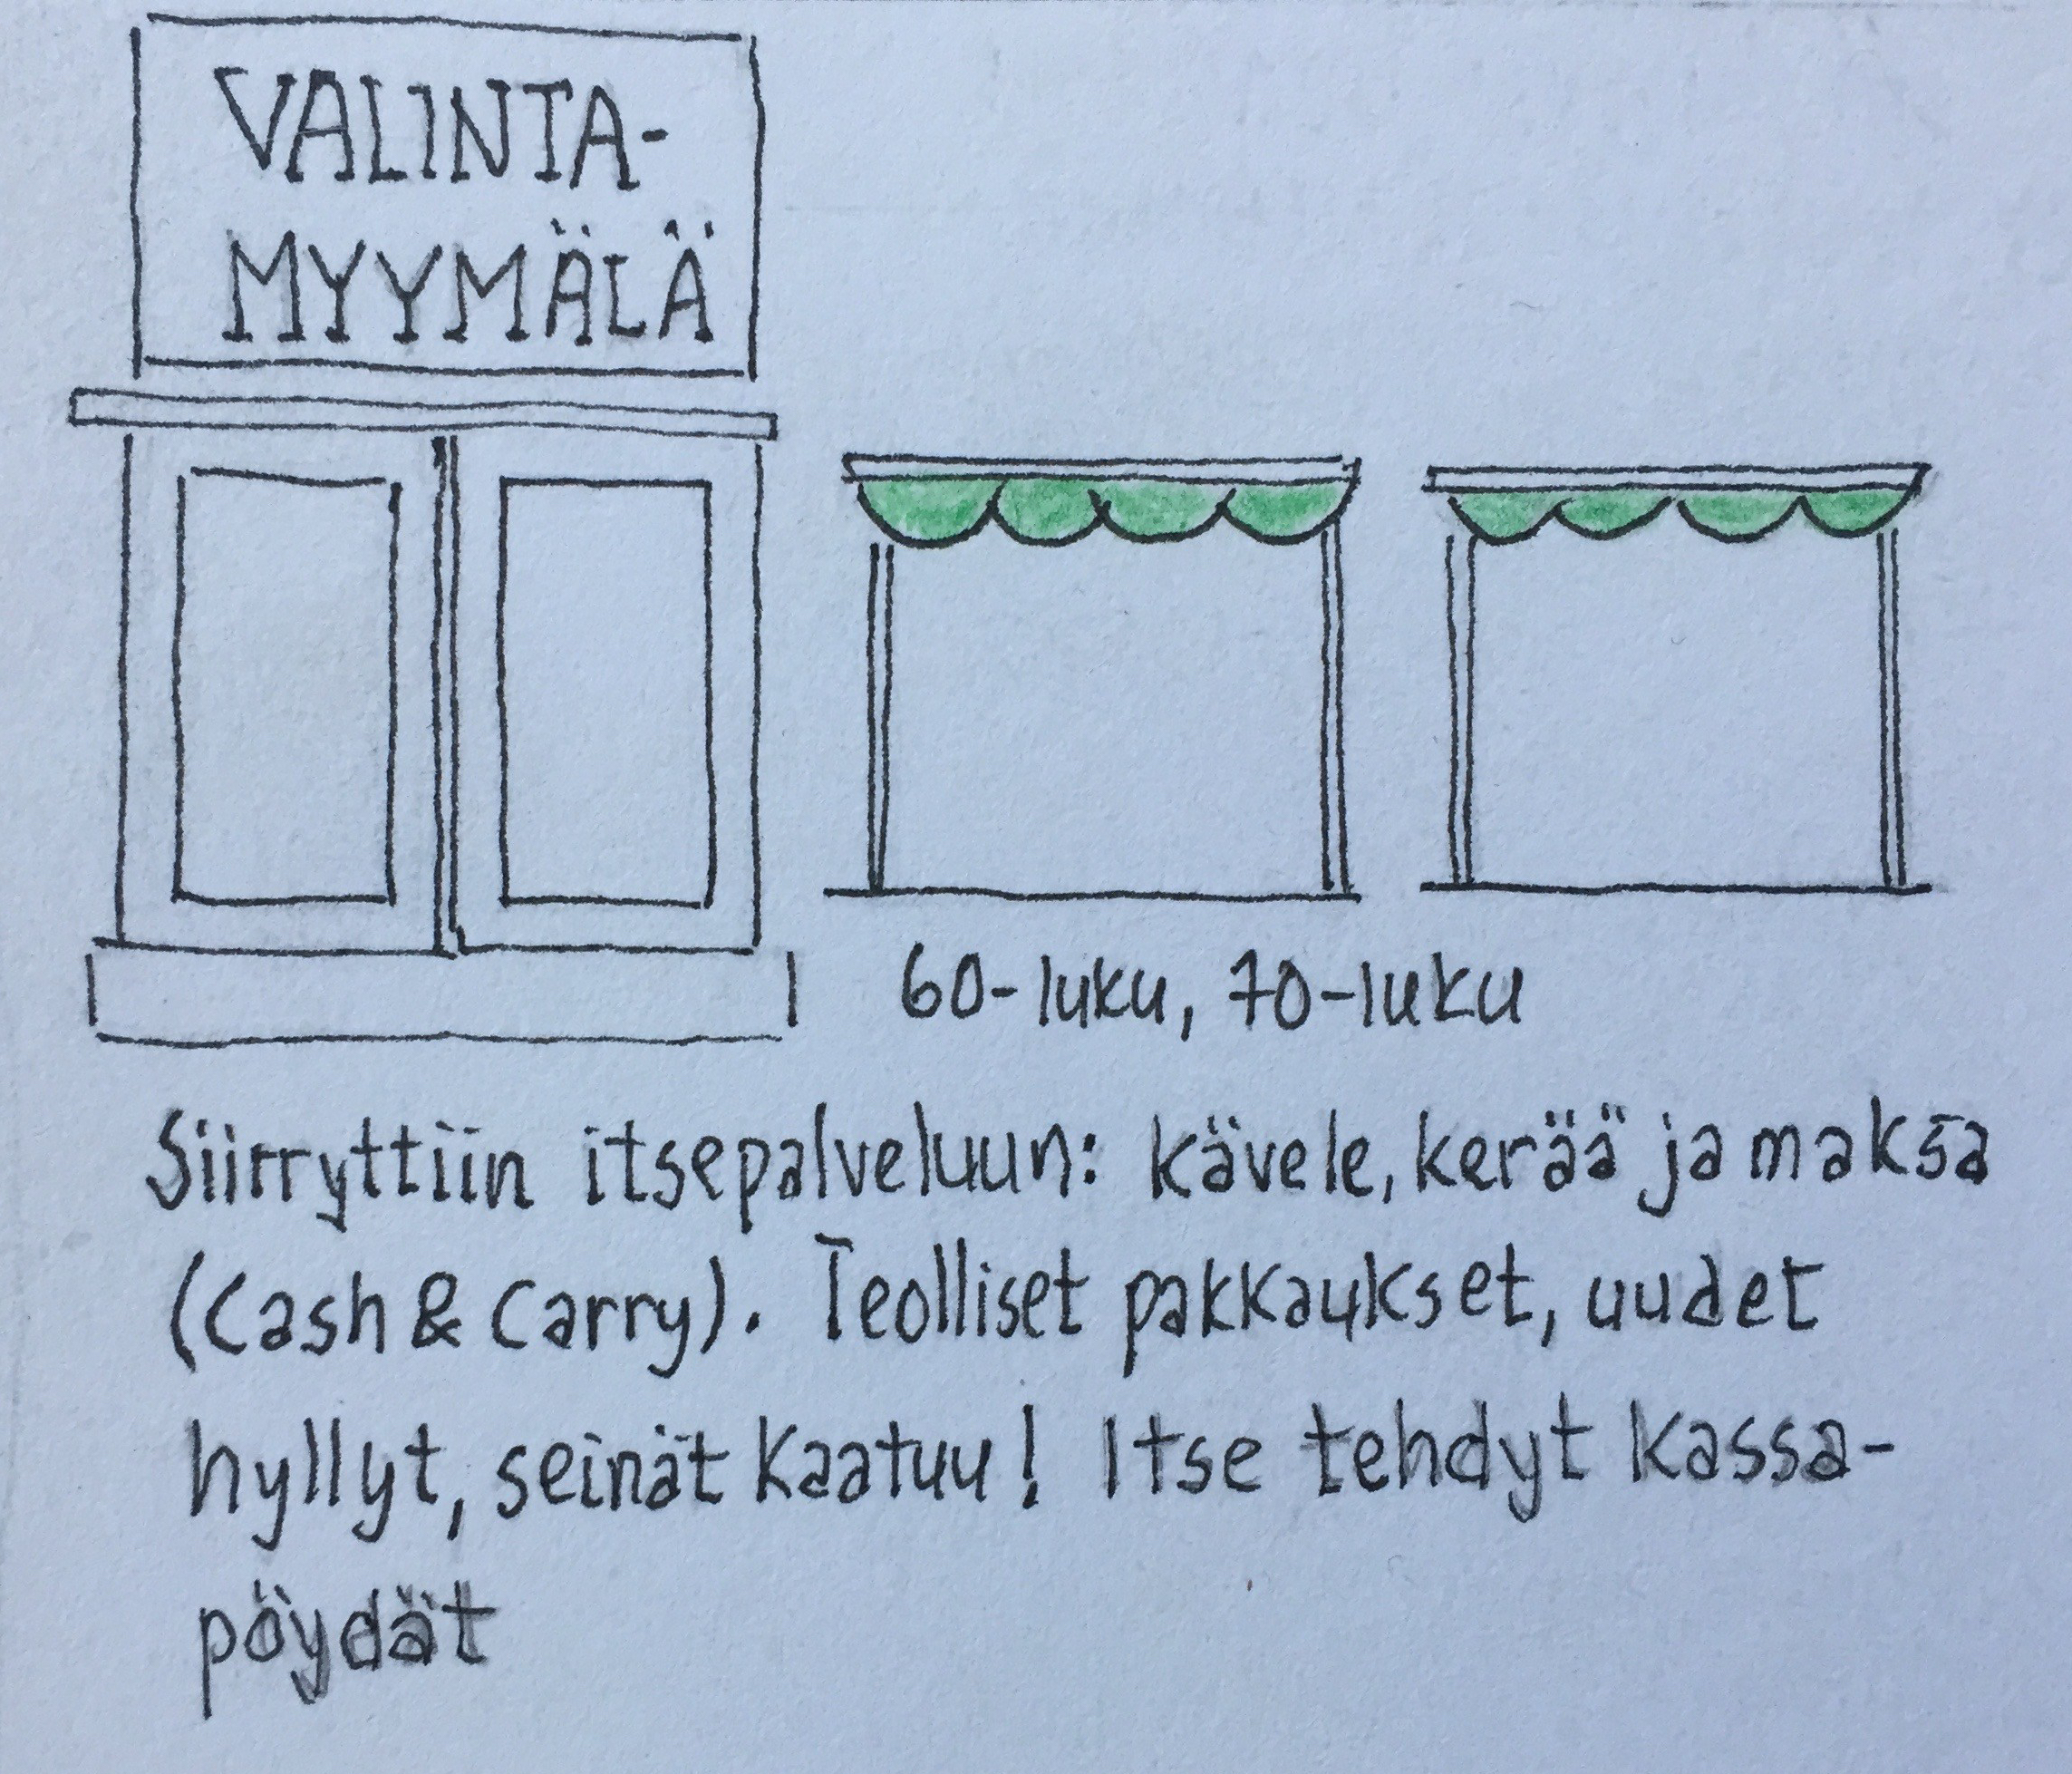 VALINTA-
MYYMÄLÄ
60-luku, 70-luku
Siirryttiin itsepalveluun: kävele, kerää ja maksa
(Cash & Carry). Teolliset pakkaukset, uudet
hyllyt, seinät kaatuu! Itse tehdyt kassa-
pöydät